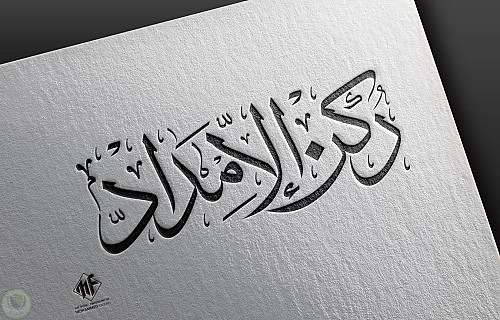 ركن الإمداد
MF